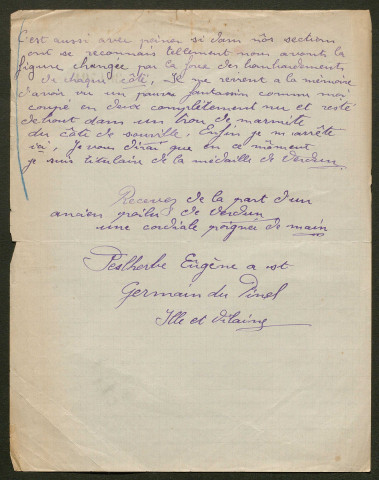 C'est aussi avec peines si dans nôs sections
ont se reconnais tellement nous avonts la
figure changée par la force des bombardements
de chaque côté, Il me revient a la mémoire
d'avoir vu un pauvre fantassin comme moi
coupé en deux complètement nu et resté
debout dans un trou de marmite
du côté de souville. Enfin je m'arrête
ici, Je vous dirai que en ce môment
je suis titulaire de la médaille de Verdun.
Recevez de la part d'un
ancien poilu de Verdun
une cordiale poignée de main
Peslherbe Eugène a st
Germain du Pinel
Ille et Vilaine